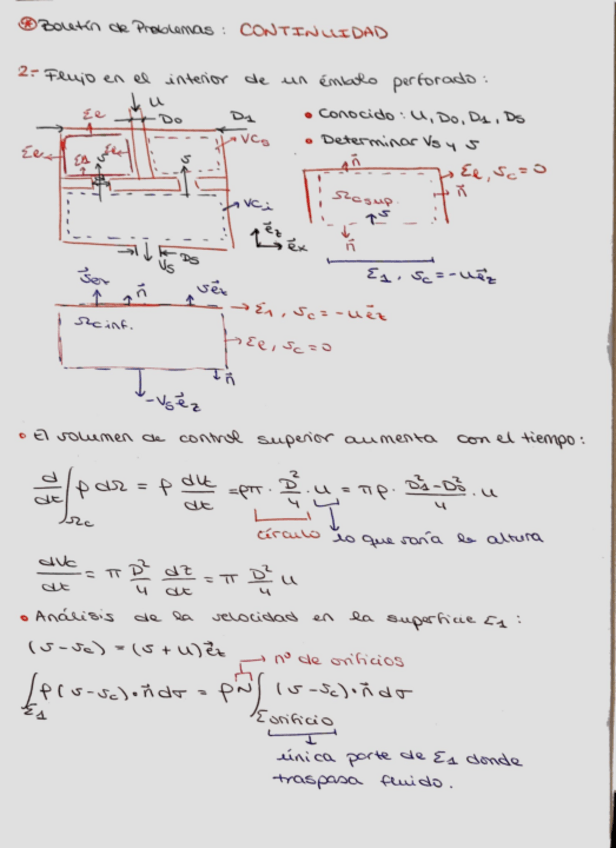 ⊛ Boletín de Problemas: CONTINUIDAD
2.- Flujo en el interior de un émbolo perforado:
U
Σe D₀ D₁
• Conocido: U, D₀, D₁, D₅
VCs
Σe Σ1 Σe v v
• Determinar V₅ y v
n⃗
Σe, v_c = 0
Ωc sup. n⃗
VCi
v
e⃗z
e⃗x
n⃗
V₅ D₅
Σ1, v_c = -u e⃗z
v e⃗z n⃗ v e⃗z
Σ1, v_c = -u e⃗z
Ωc inf.
Σe, v_c = 0
n⃗
-V₅ e⃗z
• El volumen de control superior aumenta con el tiempo:
d/dt ∫_Ωc ρ dΩ = ρ dVc/dt = ρπ · D²/4 · u = πρ · (D₁²-D₀²)/4 · u
círculo lo que varía la altura
dVc/dt = π D²/4 dz/dt = π D²/4 u
• Análisis de la velocidad en la superficie Σ1:
(v - v_c) = (v + u) e⃗z
nº de orificios
∫_Σ1 ρ(v - v_c) · n⃗ dσ = ρN ∫_Σorificio (v - v_c) · n⃗ dσ
única parte de Σ1 donde
traspasa fluido.